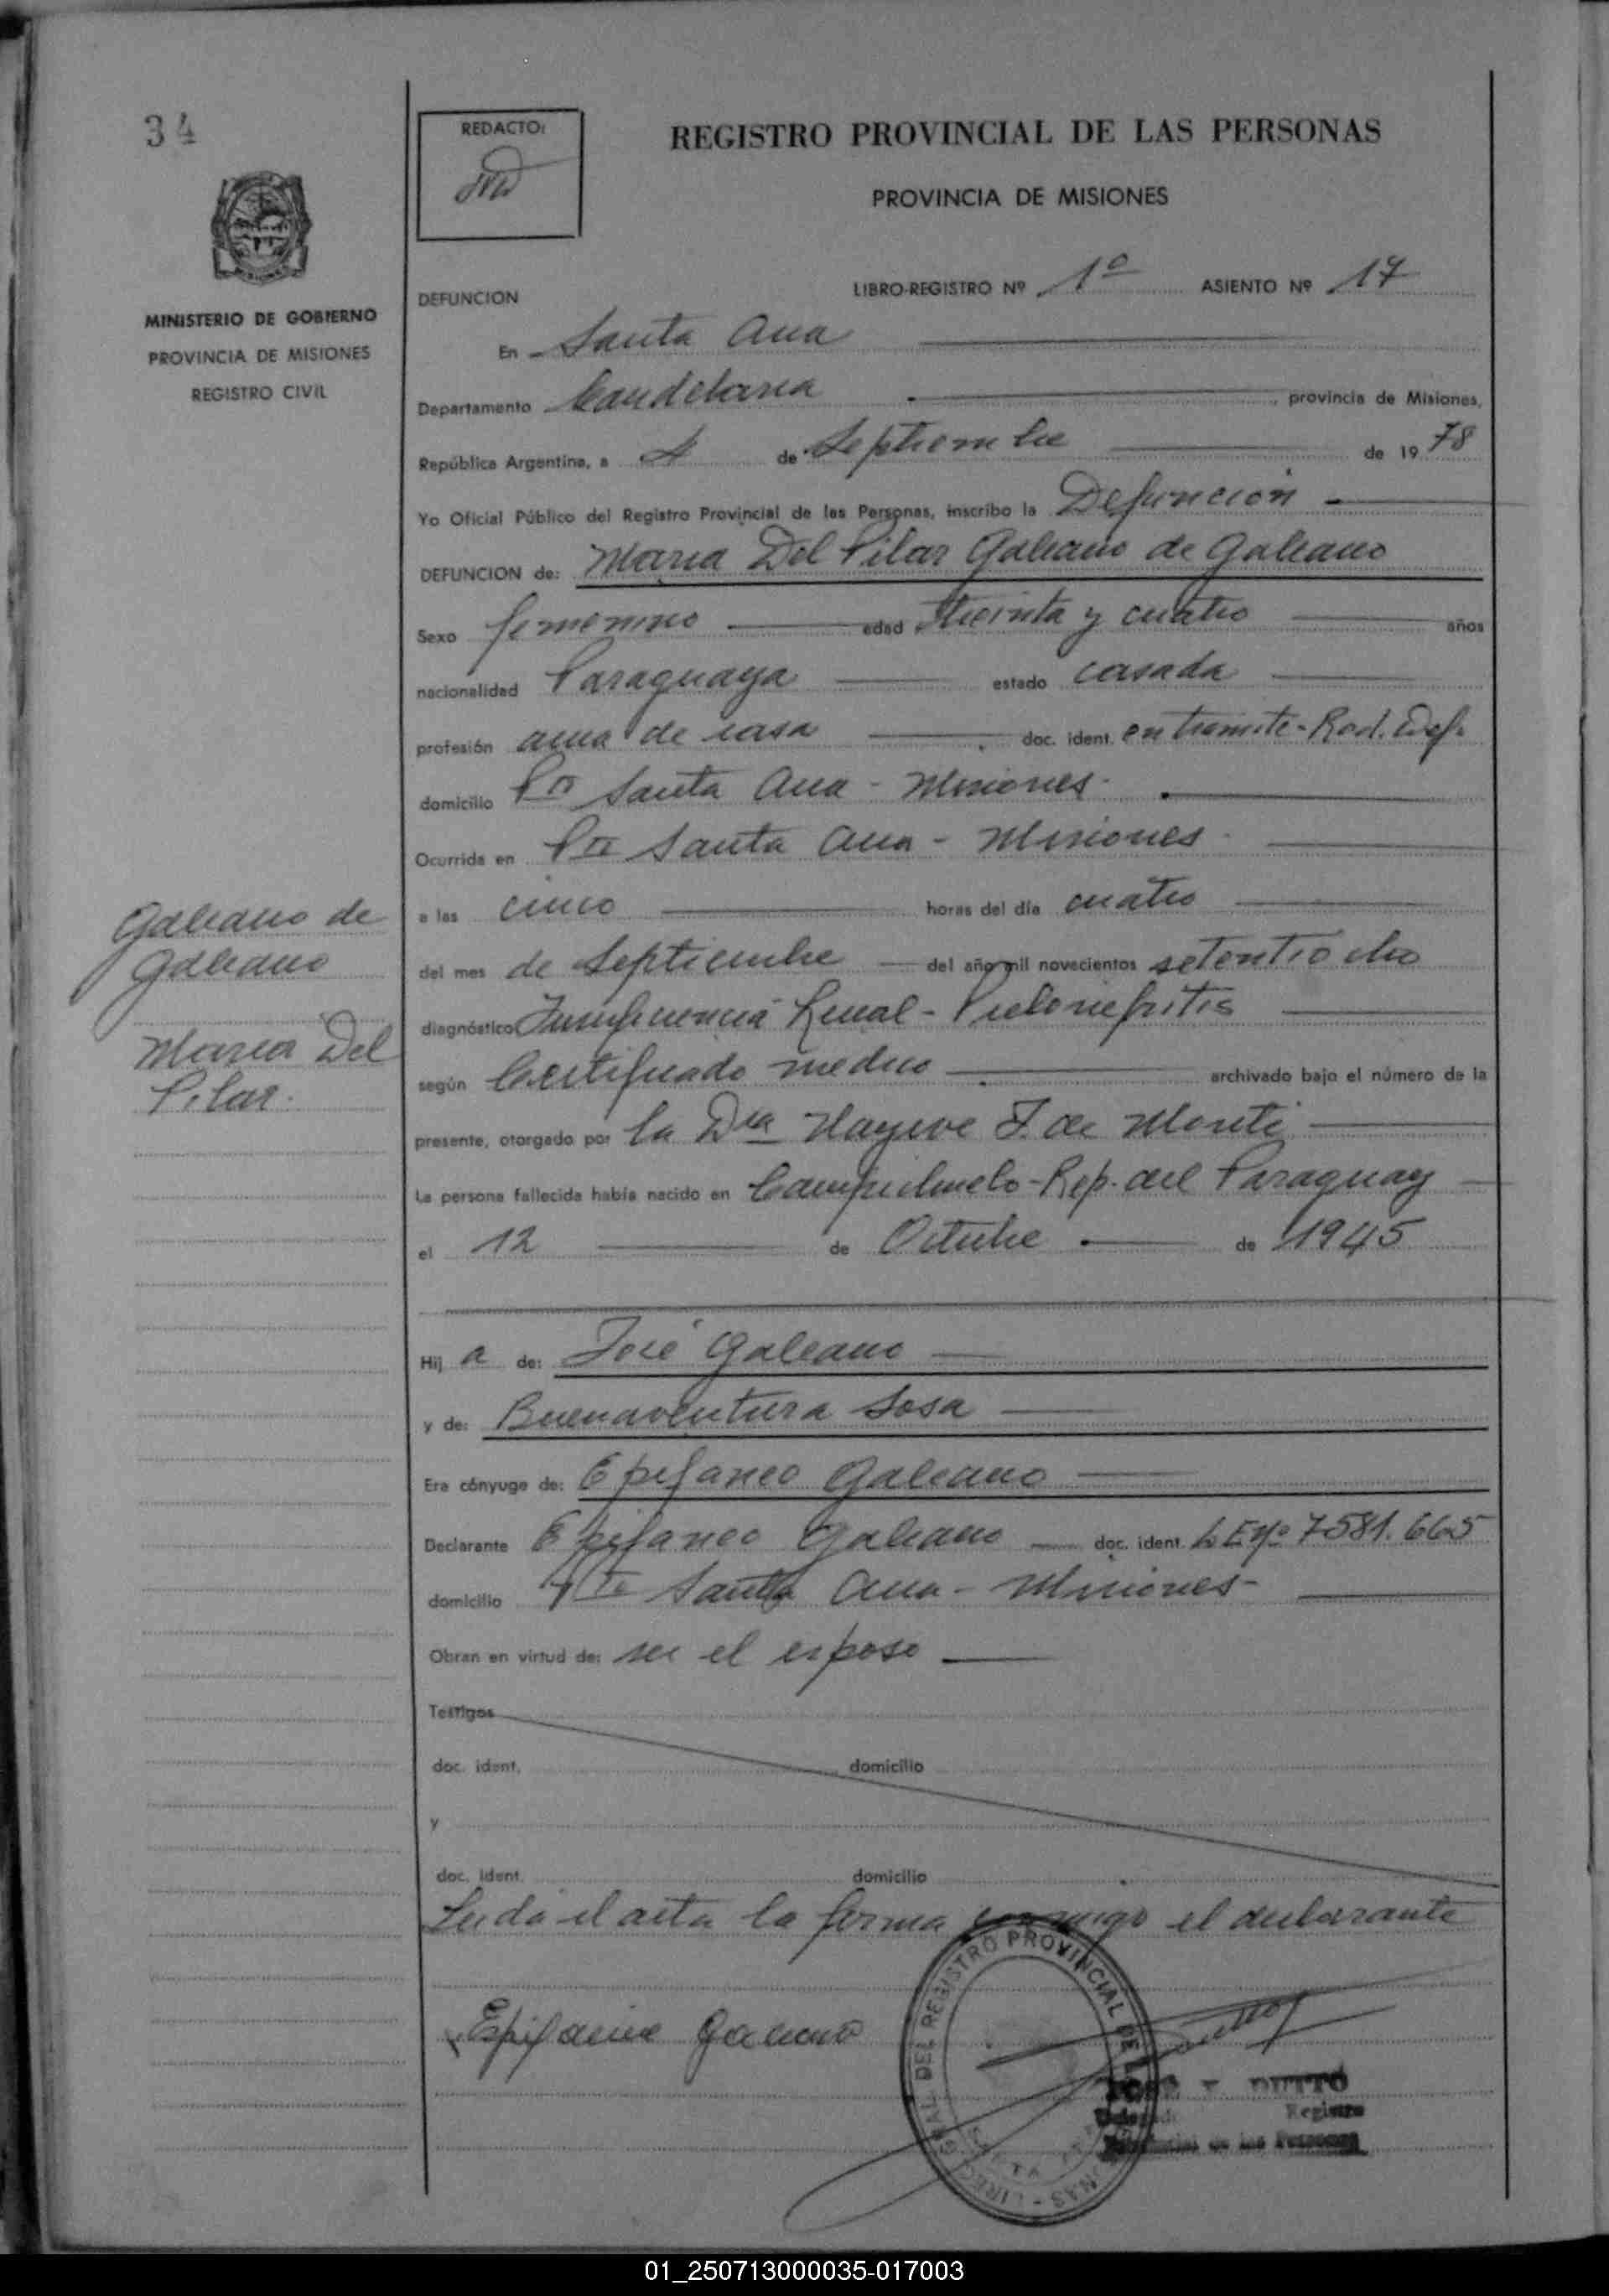 34
REDACTO:
REGISTRO PROVINCIAL DE LAS PERSONAS
PROVINCIA DE MISIONES
MINISTERIO DE GOBIERNO
PROVINCIA DE MISIONES
REGISTRO CIVIL
DEFUNCION
LIBRO-REGISTRO Nº 1º ASIENTO Nº 17
En Santa Ana
Departamento Candelaria provincia de Misiones,
República Argentina, a 4 de Septiembre de 1978
Yo Oficial Público del Registro Provincial de las Personas, inscribo la Defunción
DEFUNCION de: Maria Del Pilar Galeano de Galeano
Sexo femenino edad treinta y cuatro años
nacionalidad Paraguaya estado casada
profesión ama de casa doc. ident. en tramite - Rad. Def.
domicilio Pto Santa Ana - Misiones.
Ocurrida en Pto Santa Ana - Misiones
a las cinco horas del día cuatro
del mes de Septiembre del año mil novecientos setentiocho
diagnóstico Insuficiencia Renal - Pielonefritis
según Certificado medico archivado bajo el número de la
presente, otorgado por la Dra Nayeve J. de Monti
La persona fallecida había nacido en Campichuelo - Rep. del Paraguay
el 12 de Octubre de 1945
Galeano de
Galeano
Maria Del
Pilar.
Hija de: José Galeano
y de: Buenaventura Sosa
Era cónyuge de: Epifaneo Galeano
Declarante Epifaneo Galeano doc. ident. L E Nº 7581.665
domicilio Pto Santa Ana - Misiones -
Obran en virtud de: ser el esposo
Testigos
doc. ident. domicilio
y
doc. ident. domicilio
Leida el acta la firma conmigo el declarante
Epifanio Galeano
DEL REGISTRO PROVINCIAL DE
JOSE DUTTO
Registro
Provincial de las Personas
01_250713000035-017003